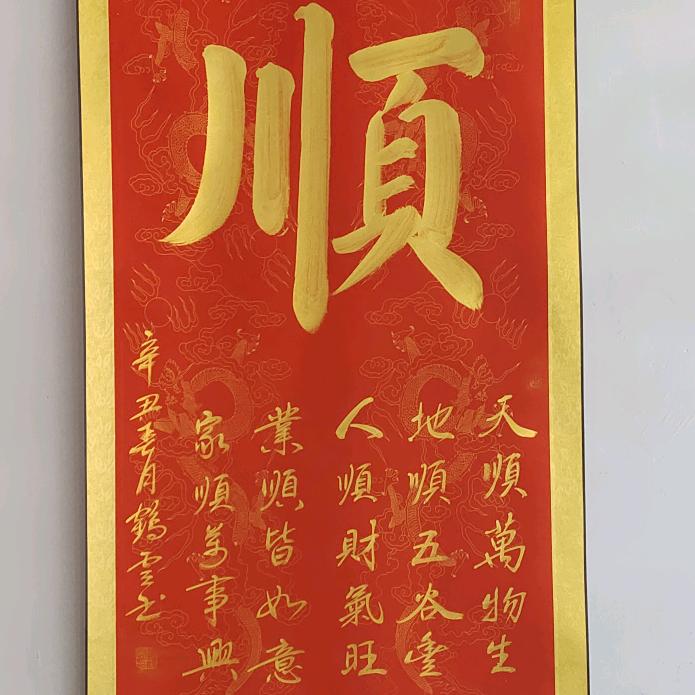 順
天順萬物生
地順五谷豐
人順財氣旺
業順皆如意
家順萬事興
辛丑春月鶴雲书